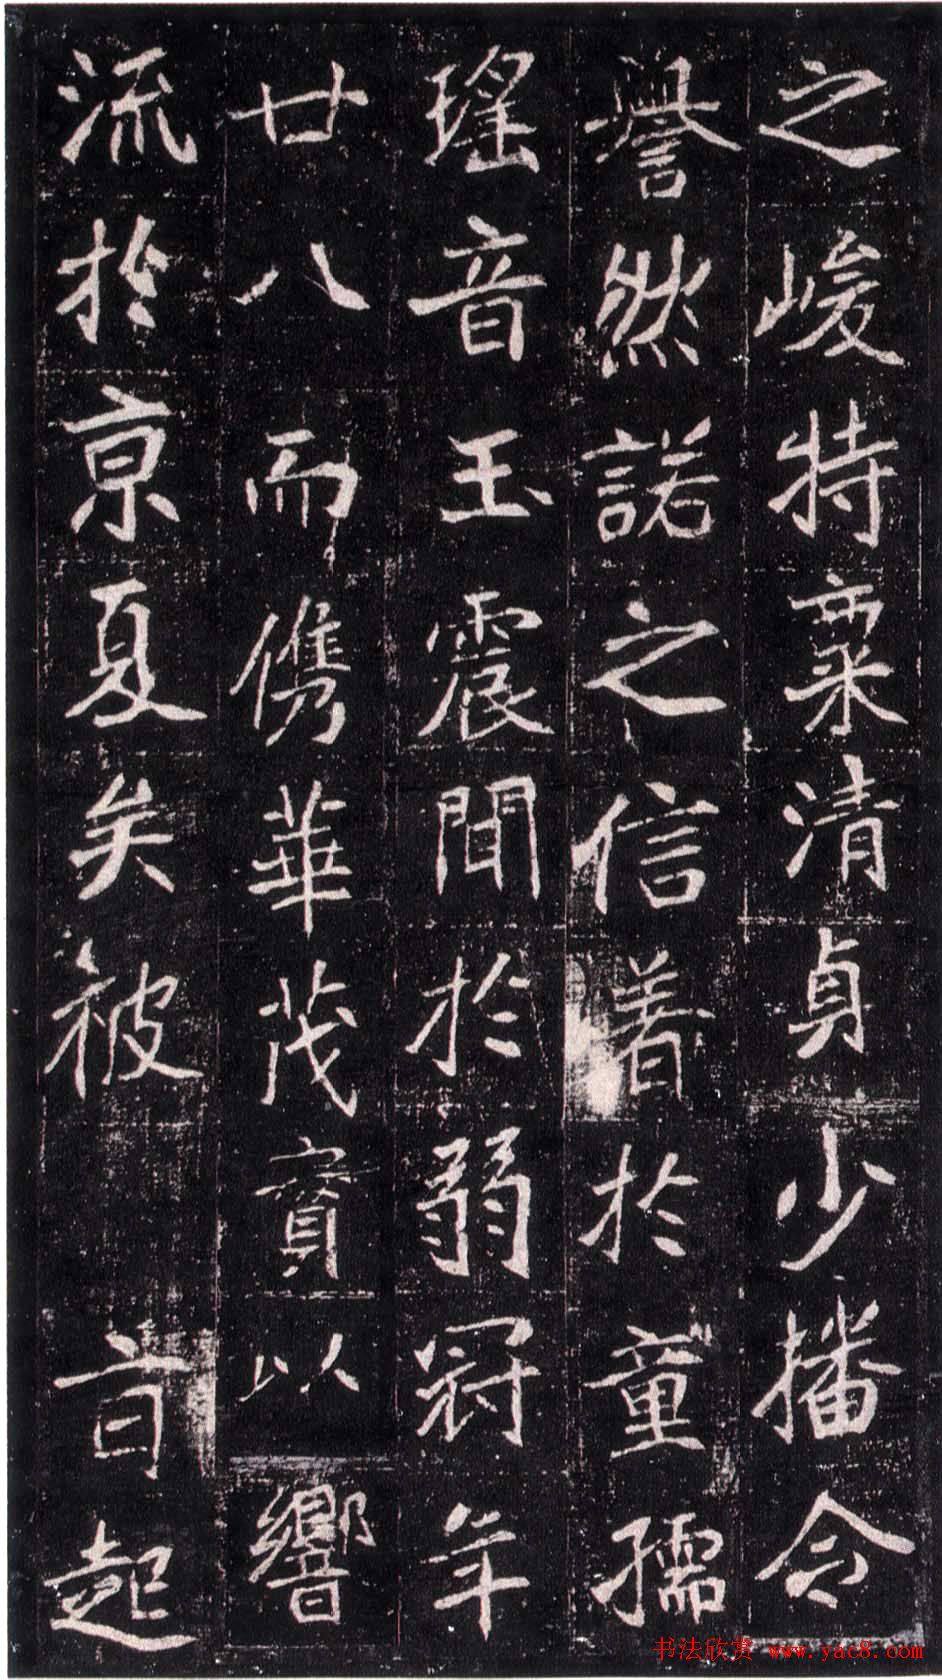 之峻特稟清貞少播令
譽然諾之信着於童孺
瑤音玉震聞於弱冠年
廿八而儁華茂實以響
流於京夏矣被 旨起
书法欣赏 www.yac8.com